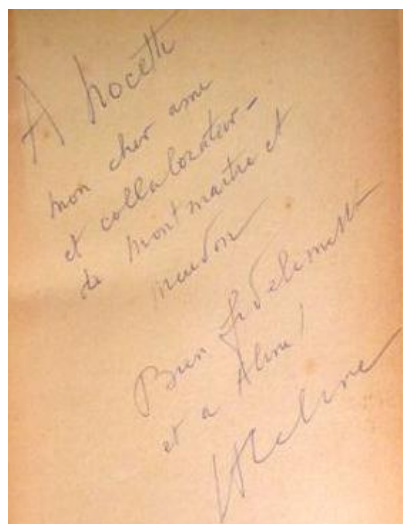 A Nocetti
mon cher ami
et collaborateur -
de Montmartre et
meudon
Bien fidelement
et a Aline !
LF Celine